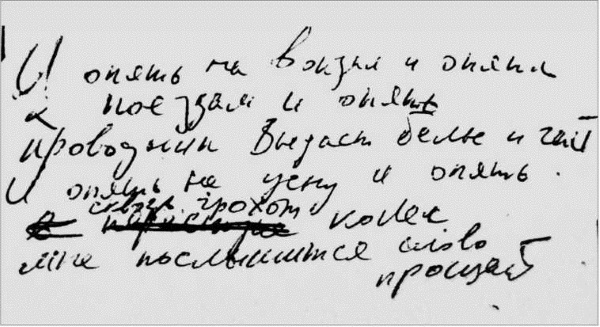 И опять на вокзал и опять
к поездам и опять
проводник выдаст белье и чай
И опять не усну и опять
сквозь грохот
колес
мне послышится слово
прощай